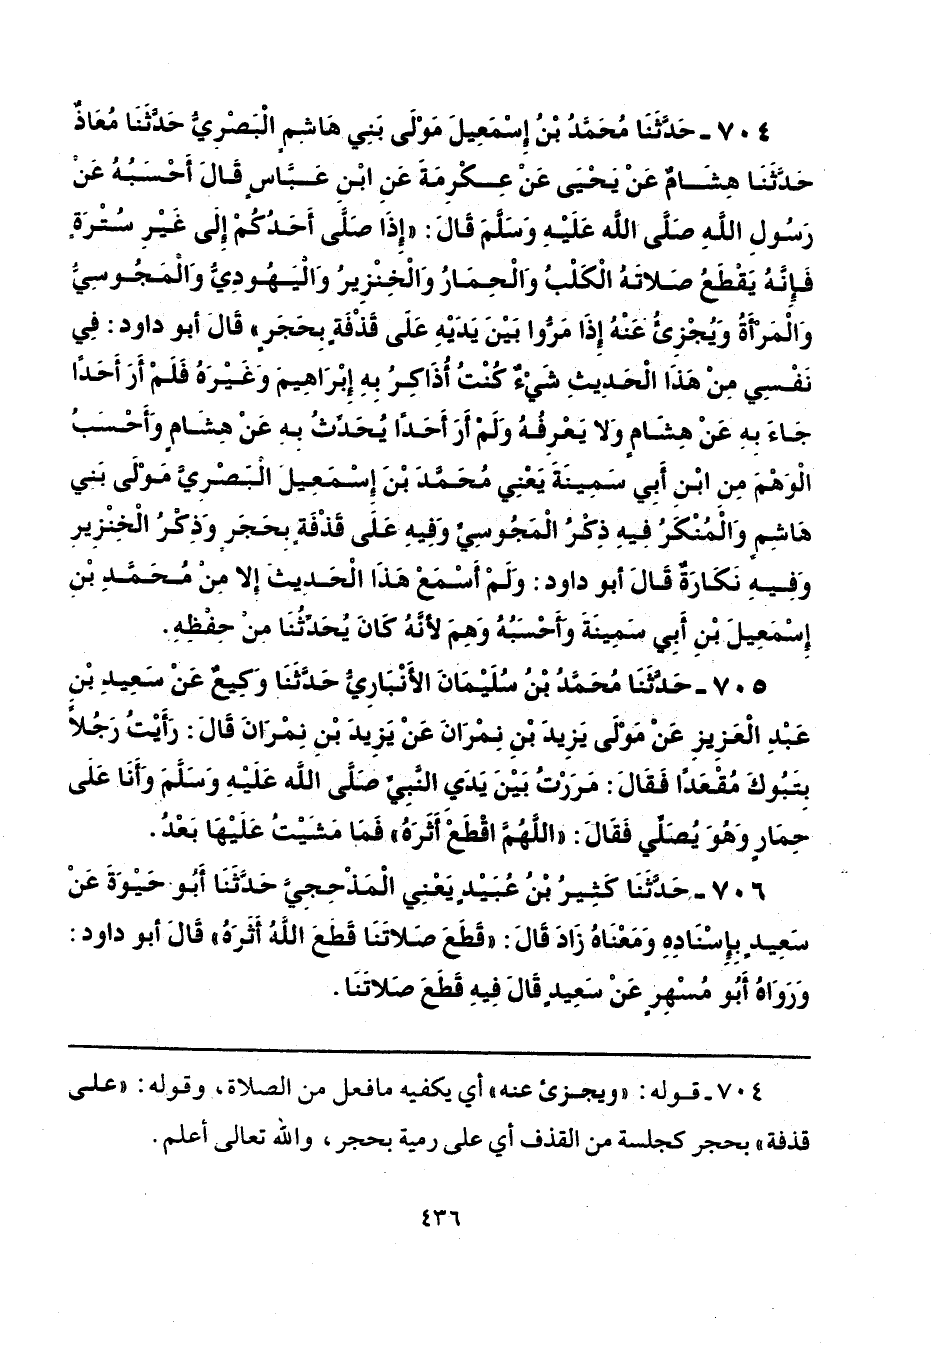 ٧٠٤ـ حَدَّثَنَا مُحَمَّدُ بْنُ إِسْمَعِيلَ مَوْلَى بَنِي هَاشِمٍ الْبَصْرِيُّ حَدَّثَنَا مُعَاذٌ
حَدَّثَنَا هِشَامٌ عَنْ يَحْيَى عَنْ عِكْرِمَةَ عَنِ ابْنِ عَبَّاسٍ قَالَ أَحْسَبُهُ عَنْ
رَسُولِ اللَّهِ صَلَّى اللَّه عَلَيْهِ وَسَلَّمَ قَالَ: «إِذَا صَلَّى أَحَدُكُمْ إِلَى غَيْرِ سُتْرَةٍ
فَإِنَّهُ يَقْطَعُ صَلَاتَهُ الْكَلْبُ وَالْحِمَارُ وَالْخِنْزِيرُ وَالْيَهُودِيُّ وَالْمَجُوسِيُّ
وَالْمَرْأَةُ وَيُجْزِئُ عَنْهُ إِذَا مَرُّوا بَيْنَ يَدَيْهِ عَلَى قَذْفَةٍ بِحَجَرٍ» قَالَ أبو داود: فِي
نَفْسِي مِنْ هَذَا الْحَدِيثِ شَيْءٌ كُنْتُ أُذَاكِرُ بِهِ إِبْرَاهِيمَ وَغَيْرَهُ فَلَمْ أَرَ أَحَدًا
جَاءَ بِهِ عَنْ هِشَامٍ وَلَا يَعْرِفُهُ وَلَمْ أَرَ أَحَدًا يُحَدِّثُ بِهِ عَنْ هِشَامٍ وَأَحْسَبُ
الْوَهْمَ مِنِ ابْنِ أَبِي سَمِينَةَ يَعْنِي مُحَمَّدَ بْنَ إِسْمَعِيلَ الْبَصْرِيَّ مَوْلَى بَنِي
هَاشِمٍ وَالْمُنْكَرُ فِيهِ ذِكْرُ الْمَجُوسِيِّ وَفِيهِ عَلَى قَذْفَةٍ بِحَجَرٍ وَذِكْرُ الْخِنْزِيرِ
وَفِيهِ نَكَارَةٌ قَالَ أبو داود: وَلَمْ أَسْمَعْ هَذَا الْحَدِيثَ إِلا مِنْ مُحَمَّدِ بْنِ
إِسْمَعِيلَ بْنِ أَبِي سَمِينَةَ وَأَحْسَبُهُ وَهِمَ لأَنَّهُ كَانَ يُحَدِّثُنَا مِنْ حِفْظِهِ.
٧٠٥ـ حَدَّثَنَا مُحَمَّدُ بْنُ سُلَيْمَانَ الأَنْبَارِيُّ حَدَّثَنَا وَكِيعٌ عَنْ سَعِيدِ بْنِ
عَبْدِ الْعَزِيزِ عَنْ مَوْلَى يَزِيدَ بْنِ نِمْرَانَ عَنْ يَزِيدَ بْنِ نِمْرَانَ قَالَ: رَأَيْتُ رَجُلاً
بِتَبُوكَ مُقْعَدًا فَقَالَ: مَرَرْتُ بَيْنَ يَدَيِ النَّبِيِّ صَلَّى اللَّه عَلَيْهِ وَسَلَّمَ وَأَنَا عَلَى
حِمَارٍ وَهُوَ يُصَلِّي فَقَالَ: «اللَّهُمَّ اقْطَعْ أَثَرَهُ» فَمَا مَشَيْتُ عَلَيْهَا بَعْدُ.
٧٠٦ـ حَدَّثَنَا كَثِيرُ بْنُ عُبَيْدٍ يَعْنِي الْمَذْحِجِيَّ حَدَّثَنَا أَبُو حَيْوَةَ عَنْ
سَعِيدٍ بِإِسْنَادِهِ وَمَعْنَاهُ زَادَ قَالَ: «قَطَعَ صَلَاتَنَا قَطَعَ اللَّهُ أَثَرَهُ» قَالَ أبو داود:
وَرَوَاهُ أَبُو مُسْهِرٍ عَنْ سَعِيدٍ قَالَ فِيهِ قَطَعَ صَلَاتَنَا.
٧٠٤ـ قوله: «ويجزئ عنه» أي يكفيه مافعل من الصلاة، وقوله: «على
قذفة» بحجر كجلسة من القذف أي على رمية بحجر، والله تعالى أعلم.
٤٣٦